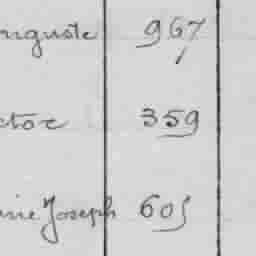 uguste 967
ctor 359
rie Joseph 605